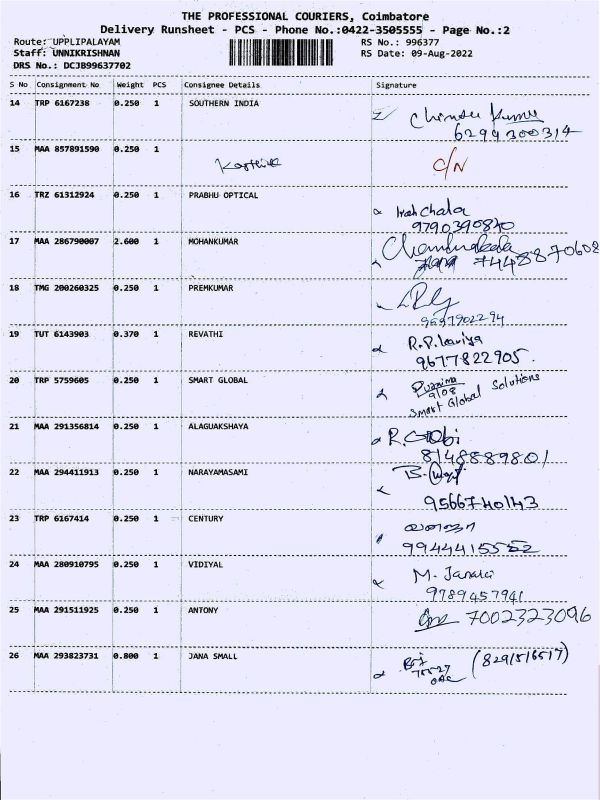 THE PROFESSIONAL COURIERS, Coimbatore
Delivery Runsheet - PCS - Phone No.:0422-3505555 - Page No.:2
Route: UPPLIPALAYAM RS No.: 996377
Staff: UNNIKRISHNAN RS Date: 09-Aug-2022
DRS No.: DCJB99637702
S No Consignment No Weight PCS Consignee Details Signature
14 TRP 6167238 0.250 1 SOUTHERN INDIA
6299300314
15 MAA 857891590 0.250 1 C/N
16 TRZ 61312924 0.250 1 PRABHU OPTICAL
9790390840
17 MAA 286790007 2.600 1 MOHANKUMAR
7448870608
18 TMG 200260325 0.250 1 PREMKUMAR
9597902294
19 TUT 6143903 0.370 1 REVATHI R.P.
9677822905.
20 TRP 5759605 0.250 1 SMART GLOBAL
9/08
Smart Global Solutions
21 MAA 291356814 0.250 1 ALAGUAKSHAYA R. Gobi
8148889801
22 MAA 294411913 0.250 1 NARAYAMASAMI
9566740143
23 TRP 6167414 0.250 1 CENTURY
24 MAA 280910795 0.250 1 VIDIYAL M.
9789457941
25 MAA 291511925 0.250 1 ANTONY 7002323096
26 MAA 293823731 0.800 1 JANA SMALL